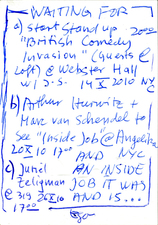 WAITING FOR
a) start Stand up 2000
"British Comedy
Invasion" (Guests @
Loft) @ Webster Hall
w/ J.S. 14 X 2010 NYC
b) Arthur Hurwitz +
Marc van Schendel to
see "Inside Job" @ Angelika
20 X 10 1700 AND NYC
c) Junel AN INSIDE
Zeligman JOB IT WAS
@ 319 26 X 10 AND IS...
1700